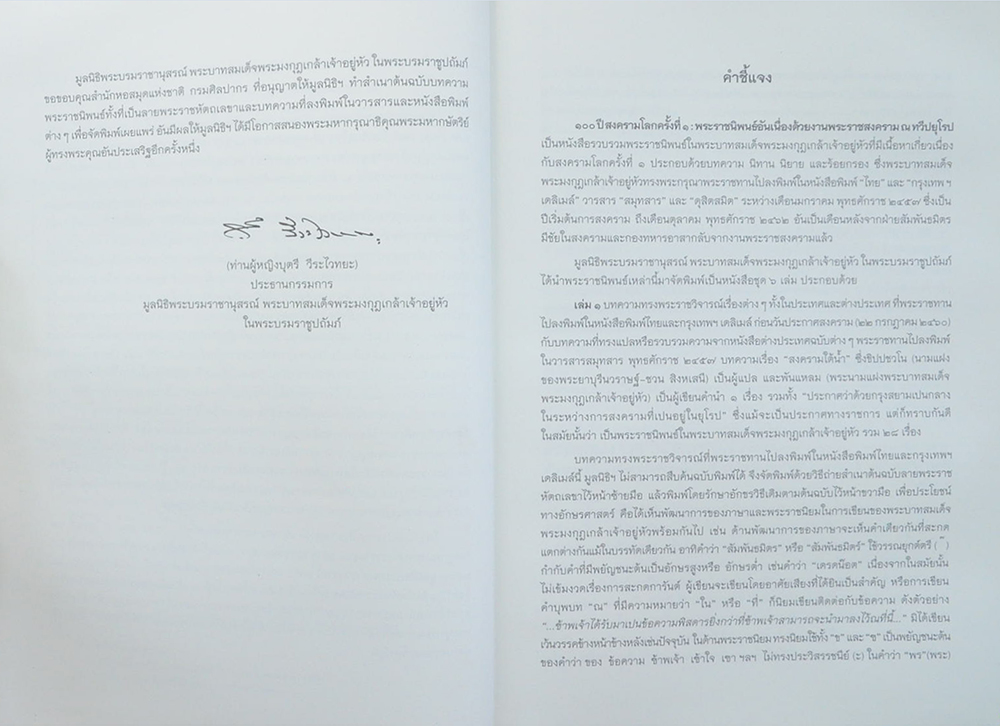 มูลนิธิพระบรมราชานุสรณ์ พระบาทสมเด็จพระมงกุฎเกล้าเจ้าอยู่หัว ในพระบรมราชูปถัมภ์
ขอขอบคุณสำนักหอสมุดแห่งชาติ กรมศิลปากร ที่อนุญาตให้มูลนิธิฯ ทำสำเนาต้นฉบับบทความ
พระราชนิพนธ์ทั้งที่เป็นลายพระราชหัตถเลขาและบทความที่ลงพิมพ์ในวารสารและหนังสือพิมพ์
ต่าง ๆ เพื่อจัดพิมพ์เผยแพร่ อันมีผลให้มูลนิธิฯ ได้มีโอกาสสนองพระมหากรุณาธิคุณพระมหากษัตริย์
ผู้ทรงพระคุณอันประเสริฐอีกครั้งหนึ่ง
(ท่านผู้หญิงบุตรี วีระไวทยะ)
ประธานกรรมการ
มูลนิธิพระบรมราชานุสรณ์ พระบาทสมเด็จพระมงกุฎเกล้าเจ้าอยู่หัว
ในพระบรมราชูปถัมภ์
คำชี้แจง
๑๐๐ ปี สงครามโลกครั้งที่ ๑ : พระราชนิพนธ์อันเนื่องด้วยงานพระราชสงคราม ณ ทวีปยุโรป
เป็นหนังสือรวบรวมพระราชนิพนธ์ในพระบาทสมเด็จพระมงกุฎเกล้าเจ้าอยู่หัวที่มีเนื้อหาเกี่ยวเนื่อง
กับสงครามโลกครั้งที่ ๑ ประกอบด้วยบทความ นิทาน นิยาย และร้อยกรอง ซึ่งพระบาทสมเด็จ
พระมงกุฎเกล้าเจ้าอยู่หัวทรงพระกรุณาพระราชทานไปลงพิมพ์ในหนังสือพิมพ์ “ไทย” และ “กรุงเทพ ฯ
เดลิเมล์” วารสาร “สมุทสาร” และ “ดุสิตสมิต” ระหว่างเดือนมกราคม พุทธศักราช ๒๔๕๗ ซึ่งเป็น
ปีเริ่มต้นการสงคราม ถึงเดือนตุลาคม พุทธศักราช ๒๔๖๒ อันเป็นเดือนหลังจากฝ่ายสัมพันธมิตร
มีชัยในสงครามและกองทหารอาสากลับจากงานพระราชสงครามแล้ว
มูลนิธิพระบรมราชานุสรณ์ พระบาทสมเด็จพระมงกุฎเกล้าเจ้าอยู่หัว ในพระบรมราชูปถัมภ์
ได้นำพระราชนิพนธ์เหล่านี้มาจัดพิมพ์เป็นหนังสือชุด ๖ เล่ม ประกอบด้วย
เล่ม ๑ บทความทรงพระราชวิจารณ์เรื่องต่าง ๆ ทั้งในประเทศและต่างประเทศ ที่พระราชทาน
ไปลงพิมพ์ในหนังสือพิมพ์ไทยและกรุงเทพฯ เดลิเมล์ ก่อนวันประกาศสงคราม (๒๒ กรกฎาคม ๒๔๖๐)
กับบทความที่ทรงแปลหรือรวบรวมความจากหนังสือต่างประเทศฉบับต่าง ๆ พระราชทานไปลงพิมพ์
ในวารสารสมุทสาร พุทธศักราช ๒๔๕๗ บทความเรื่อง “สงครามใต้น้ำ” ซึ่งชิปปชวโน (นามแฝง
ของพระยาบุรีนวราษฐ์-ชวน สิงหเสนี) เป็นผู้แปล และพันแหลม (พระนามแฝงพระบาทสมเด็จ
พระมงกุฎเกล้าเจ้าอยู่หัว) เป็นผู้เขียนคำนำ ๑ เรื่อง รวมทั้ง “ประกาศว่าด้วยกรุงสยามเปนกลาง
ในระหว่างการสงครามที่เปนอยู่ในยุโรป” ซึ่งแม้จะเป็นประกาศทางราชการ แต่ก็ทราบกันดี
ในสมัยนั้นว่า เป็นพระราชนิพนธ์ในพระบาทสมเด็จพระมงกุฎเกล้าเจ้าอยู่หัว รวม ๒๘ เรื่อง
บทความทรงพระราชวิจารณ์ที่พระราชทานไปลงพิมพ์ในหนังสือพิมพ์ไทยและกรุงเทพฯ
เดลิเมล์นี้ มูลนิธิฯ ไม่สามารถสืบค้นฉบับพิมพ์ได้ จึงจัดพิมพ์ด้วยวิธีถ่ายสำเนาต้นฉบับลายพระราช
หัตถเลขาไว้หน้าซ้ายมือ แล้วพิมพ์โดยรักษาอักขรวิธีเดิมตามต้นฉบับไว้หน้าขวามือ เพื่อประโยชน์
ทางอักษรศาสตร์ คือได้เห็นพัฒนาการของภาษาและพระราชนิยมในการเขียนของพระบาทสมเด็จ
พระมงกุฎเกล้าเจ้าอยู่หัวพร้อมกันไป เช่น ด้านพัฒนาการของภาษาจะเห็นคำเดียวกันที่สะกด
แตกต่างกันแม้ในบรรทัดเดียวกัน อาทิคำว่า “สัมพันธมิตร” หรือ “สัมพันธมิตร์” ใช้วรรณยุกต์ตรี ( ๊ )
กำกับคำที่มีพยัญชนะต้นเป็นอักษรสูงหรือ อักษรต่ำ เช่นคำว่า “เดรดน๊อต” เนื่องจากในสมัยนั้น
ไม่เข้มงวดเรื่องการสะกดการันต์ ผู้เขียนจะเขียนโดยอาศัยเสียงที่ได้ยินเป็นสำคัญ หรือการเขียน
คำบุพบท “ณ” ที่มีความหมายว่า “ใน” หรือ “ที่” ก็นิยมเขียนติดต่อกับข้อความ ดังตัวอย่าง
“...ข้าพเจ้าได้รับมาเปนข้อความพิสดารยิ่งกว่าที่ข้าพเจ้าสามารถจะนำมาลงไว้ณที่นี้...” มิได้เขียน
เว้นวรรคข้างหน้าข้างหลังเช่นปัจจุบัน ในด้านพระราชนิยม ทรงนิยมใช้ทั้ง “ข” และ “ฃ” เป็นพยัญชนะต้น
ของคำว่า ของ ข้อความ ข้าพเจ้า เข้าใจ เขา ฯลฯ ไม่ทรงประวิสรรชนีย์ (ะ) ในคำว่า “พร”(พระ)